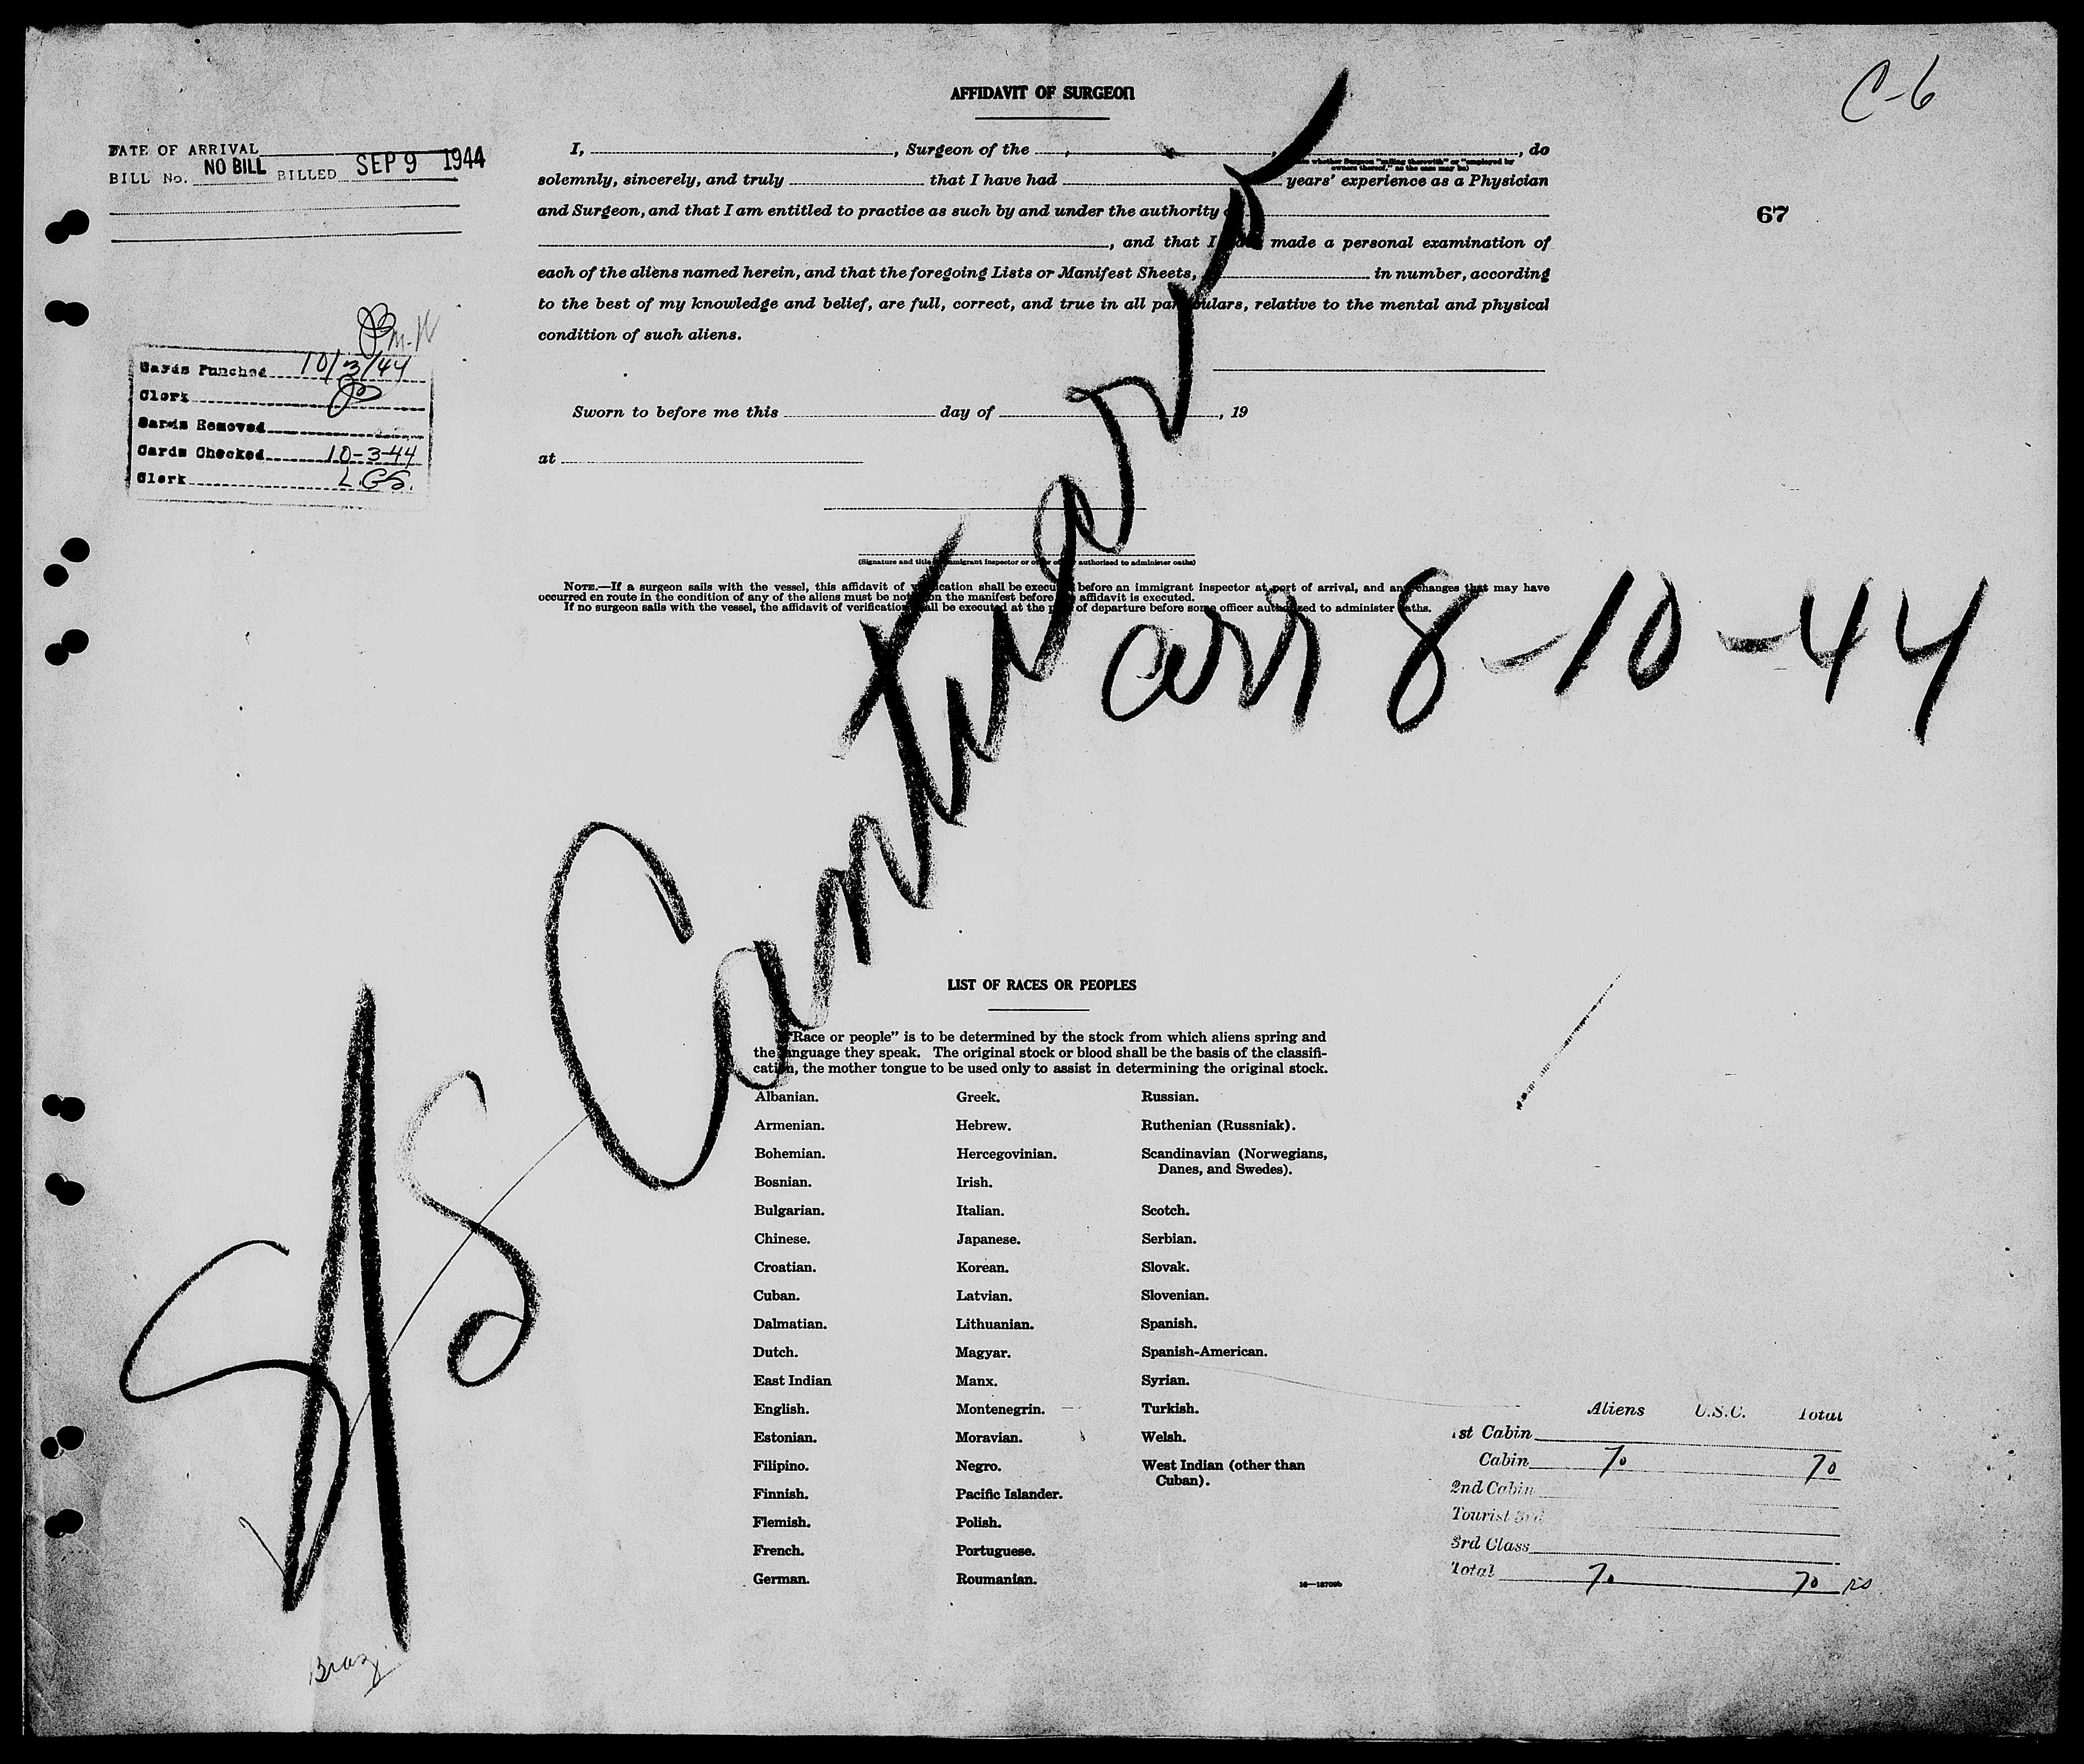 C-6
AFFIDAVIT OF SURGEON
DATE OF ARRIVAL
BILL No. NO BILL BILLED SEP 9 1944
I, , Surgeon of the , , do
owners thereof," as the case may be)
solemnly, sincerely, and truly that I have had years' experience as a Physician
and Surgeon, and that I am entitled to practice as such by and under the authority
, and that I made a personal examination of
each of the aliens named herein, and that the foregoing Lists or Manifest Sheets, in number, according
to the best of my knowledge and belief, are full, correct, and true in all particulars, relative to the mental and physical
condition of such aliens.
67
Cards Punched 10/3/44
Clerk
Cards Removed
Cards Checked 10-3-44
Clerk L.GS.
Sworn to before me this day of , 19
at
(Signature and title immigrant inspector or other officer authorized to administer oaths)
NOTE.—If a surgeon sails with the vessel, this affidavit of verification shall be executed before an immigrant inspector at port of arrival, and any changes that may have
occurred en route in the condition of any of the aliens must be noted on the manifest before the affidavit is executed.
If no surgeon sails with the vessel, the affidavit of verification shall be executed at the port of departure before some officer authorized to administer oaths.
S/S Cantuaria
arr 8-10-44
LIST OF RACES OR PEOPLES
"Race or people" is to be determined by the stock from which aliens spring and
the language they speak. The original stock or blood shall be the basis of the classifi-
cation, the mother tongue to be used only to assist in determining the original stock.
Albanian. Greek. Russian.
Armenian. Hebrew. Ruthenian (Russniak).
Bohemian. Hercegovinian. Scandinavian (Norwegians,
Danes, and Swedes).
Bosnian. Irish.
Bulgarian. Italian. Scotch.
Chinese. Japanese. Serbian.
Croatian. Korean. Slovak.
Cuban. Latvian. Slovenian.
Dalmatian. Lithuanian. Spanish.
Dutch. Magyar. Spanish-American.
East Indian Manx. Syrian.
English. Montenegrin. Turkish.
Estonian. Moravian. Welsh.
Filipino. Negro. West Indian (other than
Cuban).
Finnish. Pacific Islander.
Flemish. Polish.
French. Portuguese.
German. Roumanian.
Aliens U.S.C. Total
1st Cabin
Cabin 70 70
2nd Cabin
Tourist 3rd
3rd Class
Total 70 70
Braz